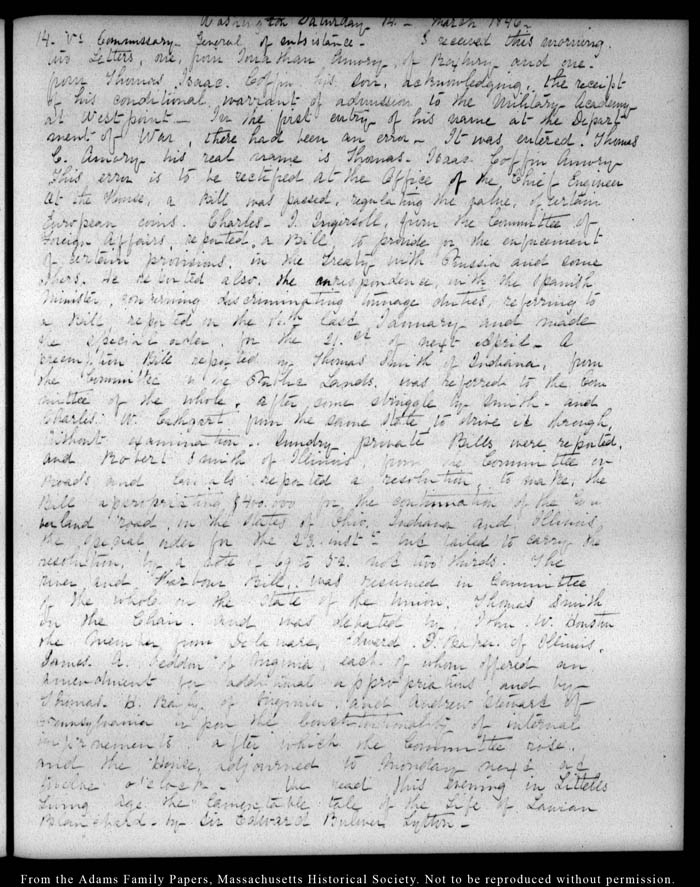 Washington Saturday 14. March 1846.
14. VI. Commissary General of subsistance. I received this morning.
two Letters, one, from Jonathan Amory, of Roxbury and one
from Thomas. Isaac. Coffin his son, acknowledging, the receipt
of his conditional, warrant of admission to the Military Academy
at West point. In the first entry of his name at the Depart
ment of War, there had been an error. It was entered. Thomas
C. Amory his real name is Thomas. Isaac. Coffin Amory.
This error is to be rectified at the Office of the Chief Engineer
At the House, a Bill was passed, regulating the value, of certain
European coins. Charles. J. Ingersoll, from the Committee of
Foreign Affairs, reported, a Bill, to provide for the enforcement
of certain provisions, in the Treaty with Prussia and some
others. He reported also the correspondence, with the Spanish
Minister, concerning discriminating tonnage duties, referring to
a Bill, reported on the last January and made
the special order for the 21. st of next April. A
preemption Bill reported by Thomas Smith of Indiana, from
the Committee on the Public Lands, was referred to the com
mittee of the whole, after some struggle by Smith. and
Charles. W. Cathcart from the same State to drive it through,
without examination. Sundry private Bills were reported.
and Robert Smith of Illinois, from the Committee on
Roads and Canals reported a resolution, to make, the
Bill appropriating $400.000 for the continuation of the Cum
berland road, in the States of Ohio, Indiana and Illinois,
the special order for the 23. inst but failed to carry the
resolution, by a vote of 69 to 52. not two thirds. The
river, and Harbour Bill, was resumed in Committee
of the whole on the State of the Union. Thomas Smith
in the Chair. and was debated by, John. W. Houston
the Member from Delaware, Edward. D. Baker. of Illinois.
James. A. Seddon of Virginia, each of whom offered an
amendment for additional appropriations and by
Thomas. H. Bayly of Virginia. and Andrew Stewart of
Pennsylvania upon the Constitutionality of internal
improvements. after which the Committee rose,
and the House, adjourned to Monday next at
twelve o'clock. read this evening in Littells
Living Age the lamentable tale of the Life of Laman
Blanchard by Sir Edward Bulwer Lytton.
From the Adams Family Papers, Massachusetts Historical Society. Not to be reproduced without permission.